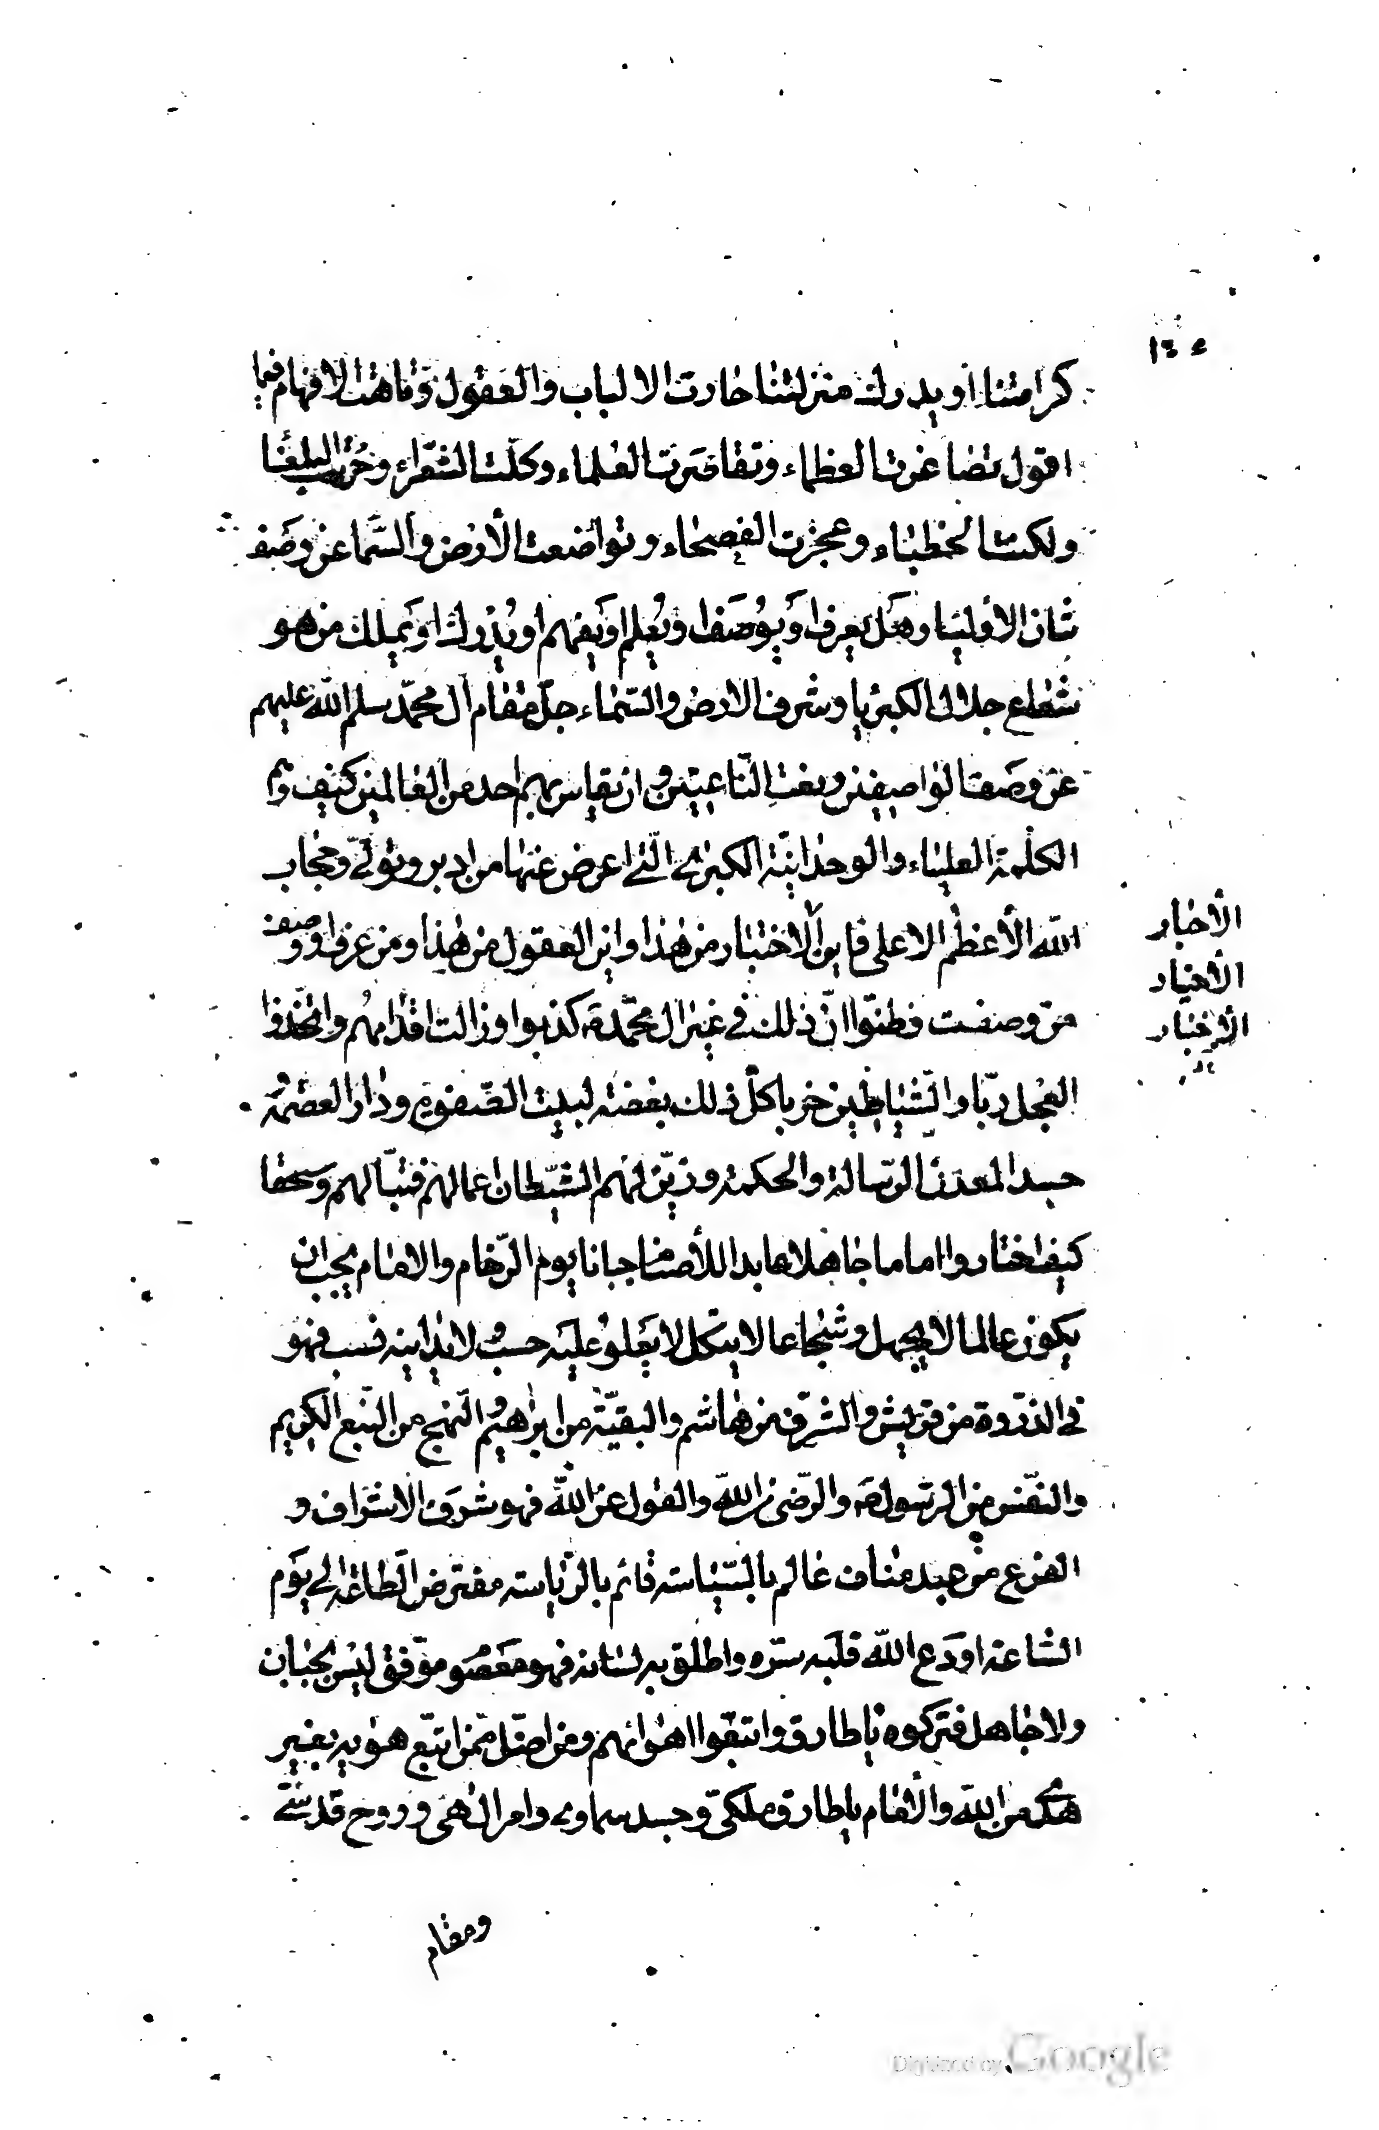 ١٤٥
كرامتنا او يدرك منزلتنا حارت الالباب والعقول وتاهت الافهام فيما
اقول تضاغرت العظماء وتقاصرت العلماء وكلّت الشعراء وخرست البلغا
ولكنت الخطباء وعجزت الفصحاء وتواضعت الأرض والسّما عن وصف
شان الاوليا وهَل يعرف اوَ يوُصَف او يُعلم او يَفهم او يُدرك اوَ يَملك من هو
شعاع جلال الكبريا وشرف الارض والسّماء جلّ مقام آل محمّد سلم الله عليهم
عن وصَف الواصفين ونعت النّاعتين وان يقاس بهم احد من العالمين كيف وهم
الكلمة العلياء والوحدانيّة الكبرىٰ الّتى اعرض عنها من ادبر وتولّى وحجاب
الله الأعظم الاعلى فاين الاختيار من هذا واين العقول من هذا ومن عرف او وصف
من وصفت وظنّوا انّ ذلك في غير آل محمّد صه كذبوا وزالت اقدامهُم واتّخذوا
العجل ربّا والشّياطين حزبا كلّ ذلك بغضة لبيت الصّفوة ودار العصمة
حسدا لمعدن الرّسالة والحكمة وزيّن لهم الشيّطان اعمالهم فتبّا لهم وسحقا
كيف اختاروا اماما جاهلا عابدا للأصنام جبانا يوم الزّحام والامام يجب ان
يكون عالما لا يجهل وشجاعا لا ينكل لا يَعلو عليَه حسب ولا يدانيه نسب فهو
في الذّروة من قريش والشّرف من هاشم والبقيّة من ابراهيم والنّهج من النّبع الكريم
والنّفس من الرسول صه والرّضى من الله والقول عن الله فهو شرف الاشراف و
الفرع من عبد مناف عالم بالسّياسة قائم بالرّياسة مفترض الطّاعة الى يوم
السّاعة اودَع الله قلبه سرّه واطلق به لسانه فهو معَصُوم موّفق ليس بجبان
ولا جاهل فتركوه يا طارق واتبعّوا اهوائهم ومن اضلّ ممّن اتبّع هويه بغير
هدًى من الله والأمام يا طارق ملكىّ وجسد سماوى وامر الٰهى وروح قدسّى
ومقام
الأحبار
الأخيار
الأخبار